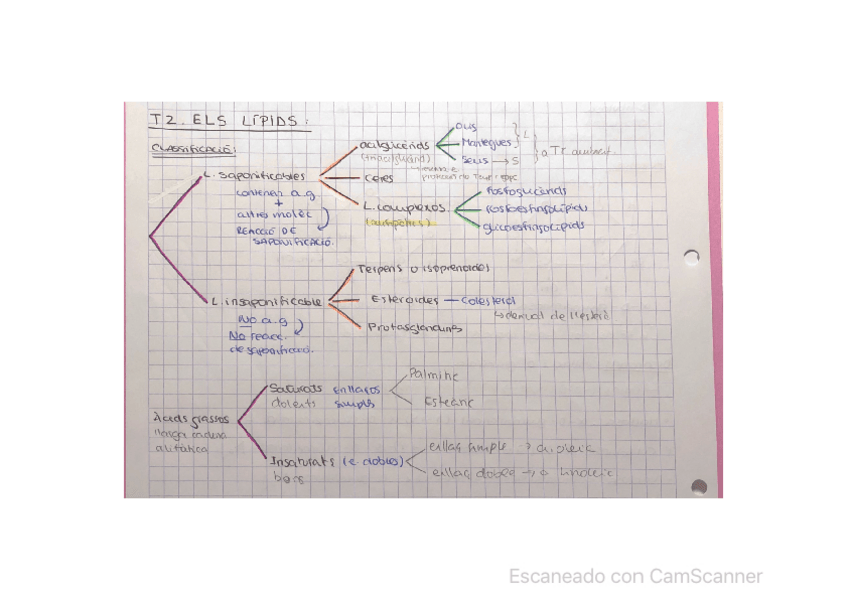 T2. ELS LÍPIDS:
CLASSIFICACIÓ:
L. saponificables
contenen a.g
+
altres molèc
REACCIÓ DE
SAPONIFICACIÓ.
acilglicèrids
Olis
Mantegues
Seus → S
L
a Tr ambient
ceres
L. complexos
(antipàtics)
Fosfoglicèrids
Fosfoesfingolípids
glucoesfingolípids
L. insaponificable
No a.g
No reacc.
de saponificació.
Terpens o isoprenoides
Esteroides — Colesterol
Prostaglandines
Àcids grassos
llarga cadena
alifàtica
Saturats enllaços
dolents simples
Palmític
Esteàric
Insaturats (e. dobles)
bons
enllaç simple → a. oleic
enllaç doble → linoleic
Escaneado con CamScanner